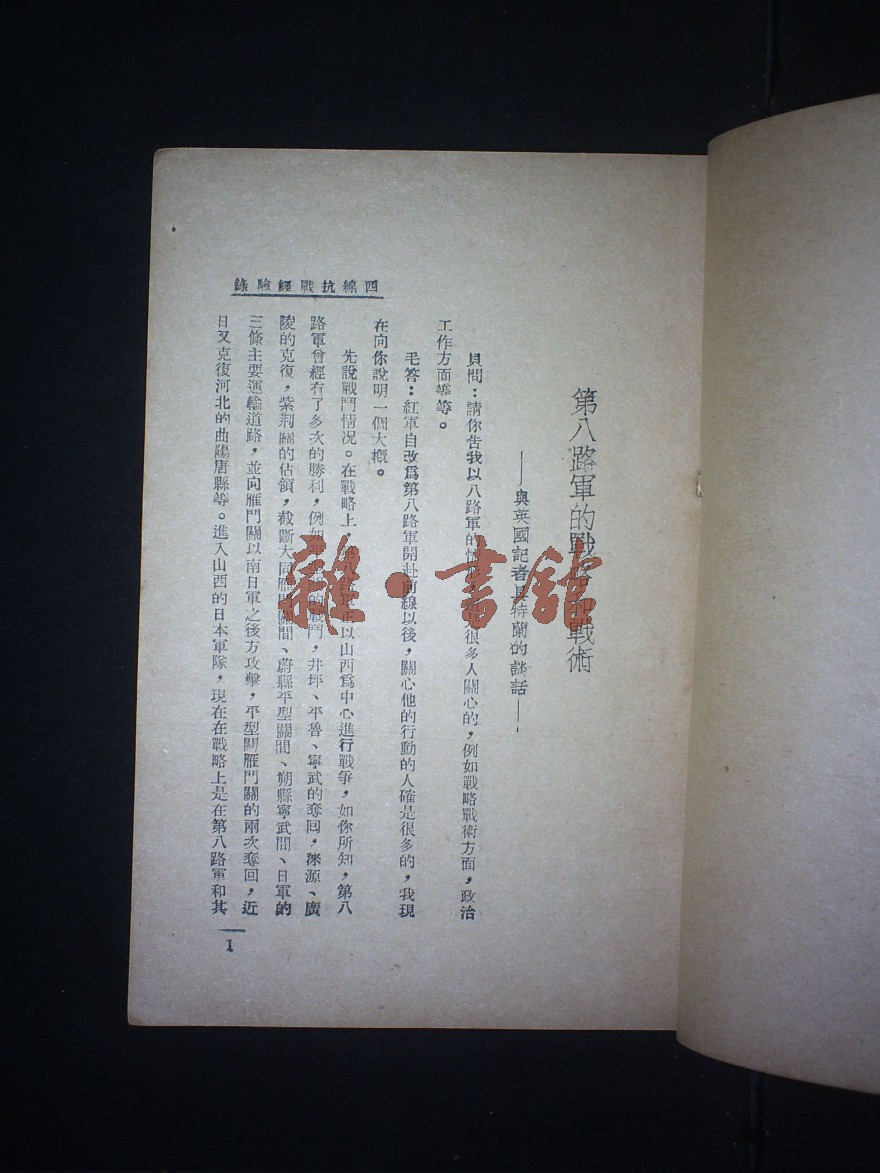 西線抗戰經驗錄
第八路軍的戰略和戰術
——與英國記者貝特蘭的談話——
貝問：請你告我以八路軍的情 很多人關心的，例如戰略戰術方面，政治
工作方面等等。
毛答：紅軍自改爲第八路軍開赴前線以後，關心他的行動的人確是很多的，我現
在向你說明一個大概。
先說戰鬥情況。在戰略上， 正以山西爲中心進行戰爭，如你所知，第八
路軍曾經有了多次的勝利，例如平型關的戰鬥，井坪、平魯、寧武的奪回，淶源、廣
陵的克復，紫荆關的佔領，截斷大同雁門關間、蔚縣平型關間、朔縣寧武間、日軍的
三條主要運輸道路，並向雁門關以南日軍之後方攻擊，平型關雁門關的兩次奪回，近
日又克復河北的曲陽唐縣等。進入山西的日本軍隊，現在在戰略上是在第八路軍和其
1
雜·書館